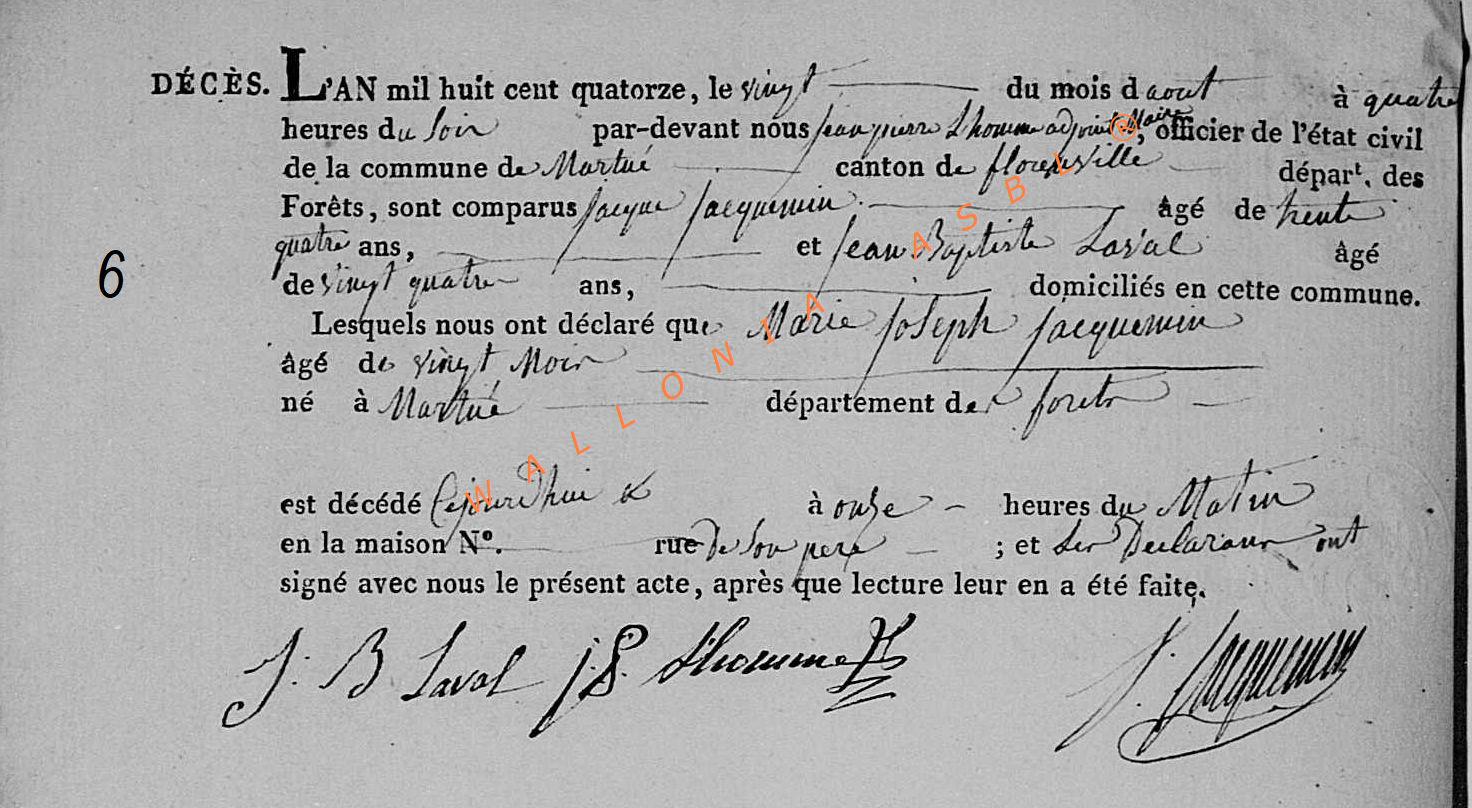 DÉCÈS. L'AN mil huit cent quatorze, le vingt du mois d aout à quatre
heures du soir par-devant nous jean pierre Lhomme adjoint Maire, officier de l'état civil
de la commune de Martué canton de florenville départ. des
Forêts, sont comparus jacque jacquemin âgé de trente
quatre ans, et jean Baptiste Laval âgé
6
de vingt quatre ans, domiciliés en cette commune.
Lesquels nous ont déclaré que Marie joseph jacquemin
âgé de vingt Mois
né à Martué département des forets
est décédé Cejourdhui à onze heures du Matin
en la maison Nº. rue de son pere ; et les Declarans ont
signé avec nous le présent acte, après que lecture leur en a été faite.
J. B Laval j. P. Lhomme J. jacquemin
WALLONIA ASBL ®